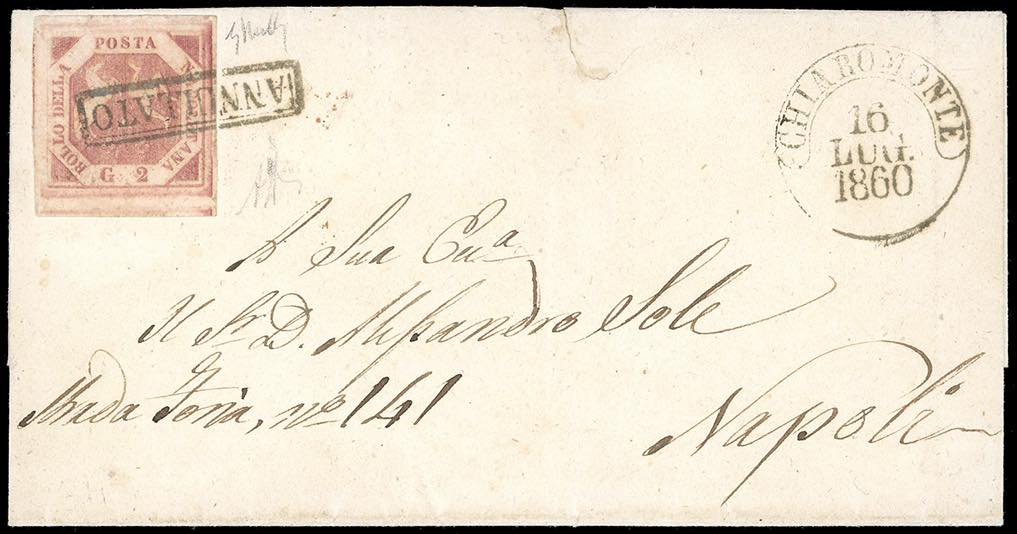 POSTA
BOLLO DELLA
G. 2
ANNULLATO
CHIAROMONTE
16
LUG.
1860
A Sua Ecc.a
Il Sr. D. Alessandro Sole
Strada Foria, no 141
Napoli